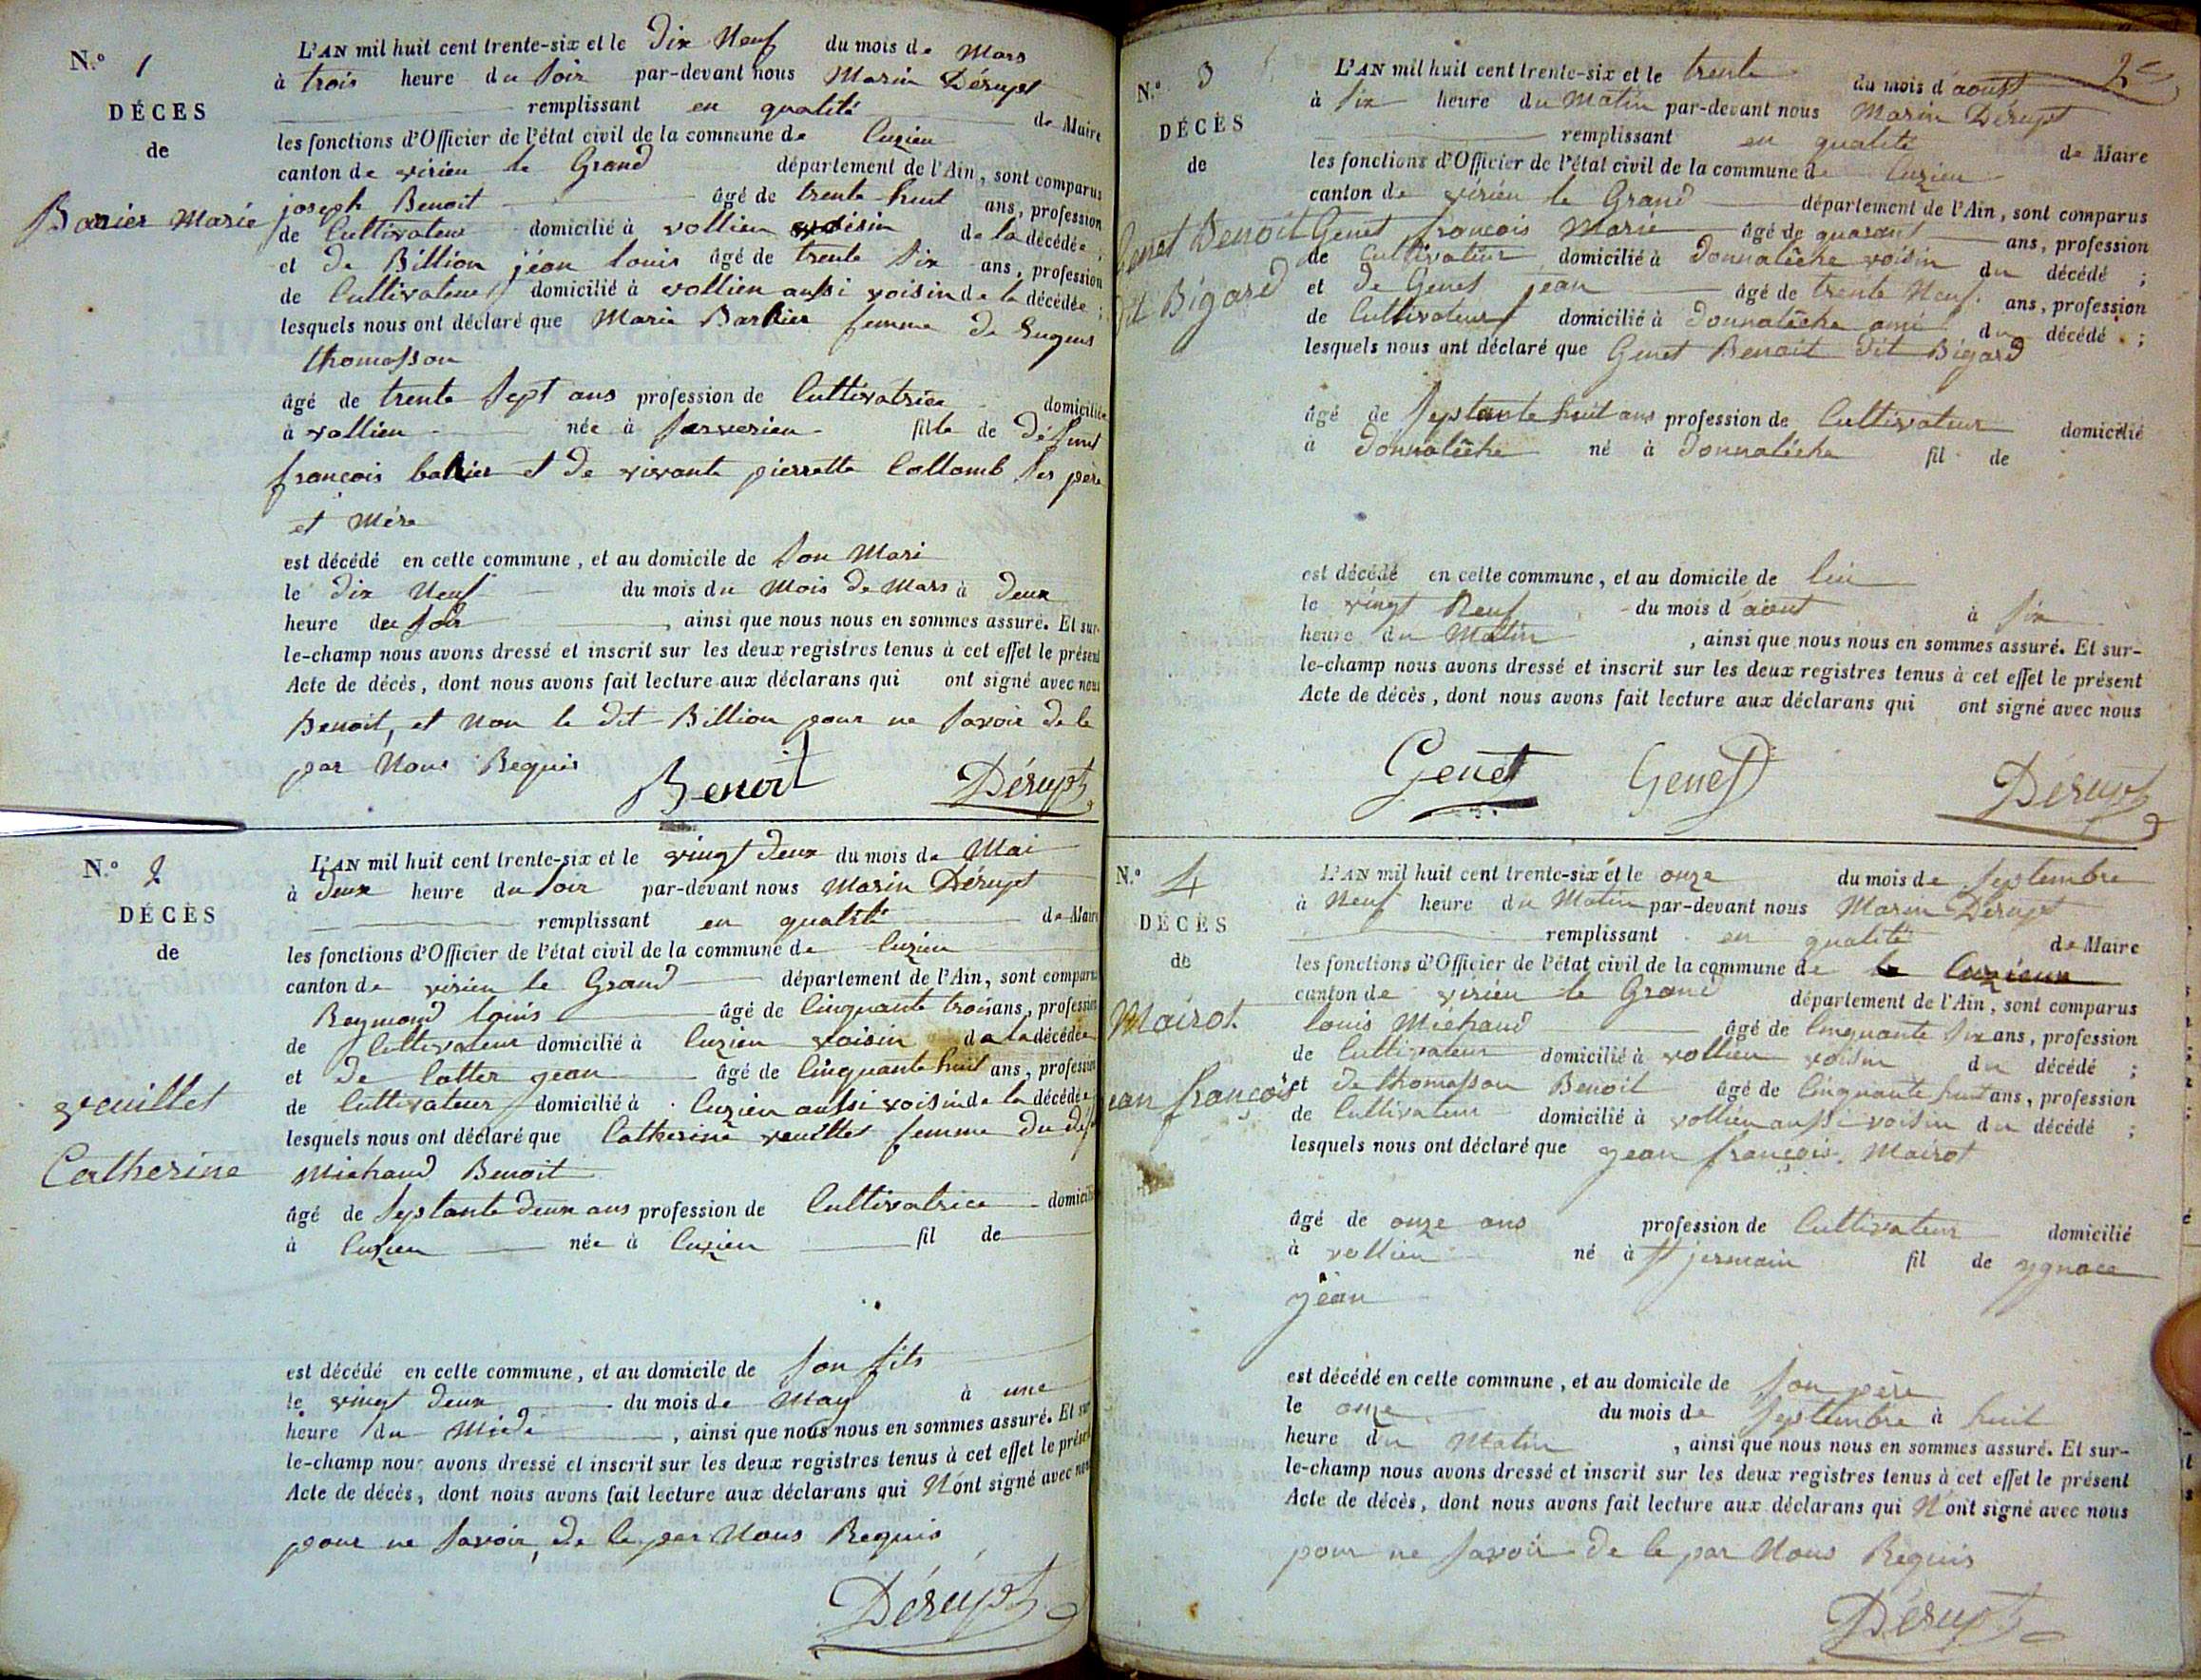 N.° 1
DÉCES
de
Barier Marie
L'AN mil huit cent trente-six et le dix Neuf du mois de Mars
à trois heure du soir par-devant nous Marin Dérupt
remplissant en qualité de Maire
les fonctions d'Officier de l'état civil de la commune de Cuzieu
canton de virieu le Grand département de l'Ain, sont comparus
joseph Benoit âgé de trente huit ans, profession
de Cultivateur domicilié à vollien voisin de la décédée,
et de Billion jéan louis âgé de trente six ans, profession
de Cultivateur domicilié à vollien aussi voisin de la décédée;
lesquels nous ont déclaré que Marie Barbier femme de
thomasson
âgé de trente sept ans profession de Cultivatrice domiciliée
à vollien née à fille de défunt
françois et de vivante pierrette Collomb ses père
et mére
est décédé en cette commune, et au domicile de son Mari
le dix Neuf du mois du Mois de Mars à deux
heure du soir, ainsi que nous nous en sommes assuré. Et sur-
le-champ nous avons dressé et inscrit sur les deux registres tenus à cet effet le présent
Acte de décès, dont nous avons fait lecture aux déclarans qui ont signé avec nous
Benoit, et non le dit Billion pour ne savoir de le
par Nous Requis
Benoit Dérupt
N.° 2
DÉCÈS
de
veuillet
Catherine
L'AN mil huit cent trente-six et le vingt deux du mois de Mai
à deux heure du soir par-devant nous Marin Dérupt
remplissant en qualité de Maire
les fonctions d'Officier de l'état civil de la commune de Cuzieu
canton de virieu le Grand département de l'Ain, sont comparus
Reymond louis âgé de Cinquante trois ans, profession
de Cultivateur domicilié à Cuzieu voisin de la décédée
et de Cotter jean âgé de Cinquante huit ans, profession
de Cultivateur domicilié à Cuzieu aussi voisin de la décédée
lesquels nous ont déclaré que Catherine veuillet femme du
Michaud Benoit
âgé de septante deux ans profession de Cultivatrice domicilié
à Cuzieu née à Cuzieu fil de
est décédé en cette commune, et au domicile de son fils
le vingt deux du mois de May à une
heure du Midi, ainsi que nous nous en sommes assuré. Et sur
le-champ nous avons dressé et inscrit sur les deux registres tenus à cet effet le présent
Acte de décès, dont nous avons fait lecture aux déclarans qui N'ont signé avec nous
pour ne savoir, de le par Nous Requis
Dérupt
2e
N.° 3
DÉCÈS
de
Genet Benoit
dit Bigard
L'AN mil huit cent trente-six et le trente du mois d'aoust
à six heure du Matin par-devant nous Marin Dérupt
remplissant en qualité de Maire
les fonctions d'Officier de l'état civil de la commune de Cuzieu
canton de virieu le Grand département de l'Ain, sont comparus
Genet françois Marie âgé de quarant ans, profession
de Cultivateur domicilié à Donnalêche voisin du décédé;
et de Genet jean âgé de trente Neuf ans, profession
de Cultivateur domicilié à Donnalêche ami du décédé;
lesquels nous ont déclaré que Genet Benoit dit Bigard
âgé de septante huit ans profession de Cultivateur domicilié
à Donnalêche né à Donnalêche fil de
est décédé en cette commune, et au domicile de lui
le vingt Neuf du mois d'aout à six
heure du Matin, ainsi que nous nous en sommes assuré. Et sur-
le-champ nous avons dressé et inscrit sur les deux registres tenus à cet effet le présent
Acte de décès, dont nous avons fait lecture aux déclarans qui ont signé avec nous
Genet Genet Dérupt
N.° 4
DÉCÈS
de
Mairot
jean françois
L'AN mil huit cent trente-six et le onze du mois de septembre
à Neuf heure du Matin par-devant nous Marin Dérupt
remplissant en qualité de Maire
les fonctions d'Officier de l'état civil de la commune de Cuzieux
canton de virieu le Grand département de l'Ain, sont comparus
louis Michaud âgé de Cinquante six ans, profession
de Cultivateur domicilié à vollien voisin du décédé;
et de thomasson Benoit âgé de Cinquante huit ans, profession
de Cultivateur domicilié à vollien aussi voisin du décédé;
lesquels nous ont déclaré que jean françois Mairot
âgé de onze ans profession de Cultivateur domicilié
à vollien né à St jermain fil de ygnace
jean
est décédé en cette commune, et au domicile de son père
le onze du mois de septembre à huit
heure du Matin, ainsi que nous nous en sommes assuré. Et sur-
le-champ nous avons dressé et inscrit sur les deux registres tenus à cet effet le présent
Acte de décès, dont nous avons fait lecture aux déclarans qui N'ont signé avec nous
pour ne savoir de le par Nous Requis
Dérupt